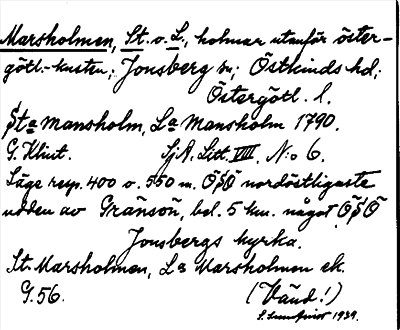 Marsholmen, St. o. L., holmar utanför öster-
götl.-kusten; Jonsberg sn; Östkinds hd;
Östergötl. l.
Sta Mansholm, La Mansholm 1790.
G. Klint. SjA, Litt. VIII, N:o 6.
Läge resp. 400 o. 550 m. ÖSÖ nordöstligaste
udden av Gränsön, bel. 5 km. något ÖSÖ
Jonsbergs kyrka.
St. Marsholmen, La Marsholmen ek.
G. 56. (Vänd!)
1939.